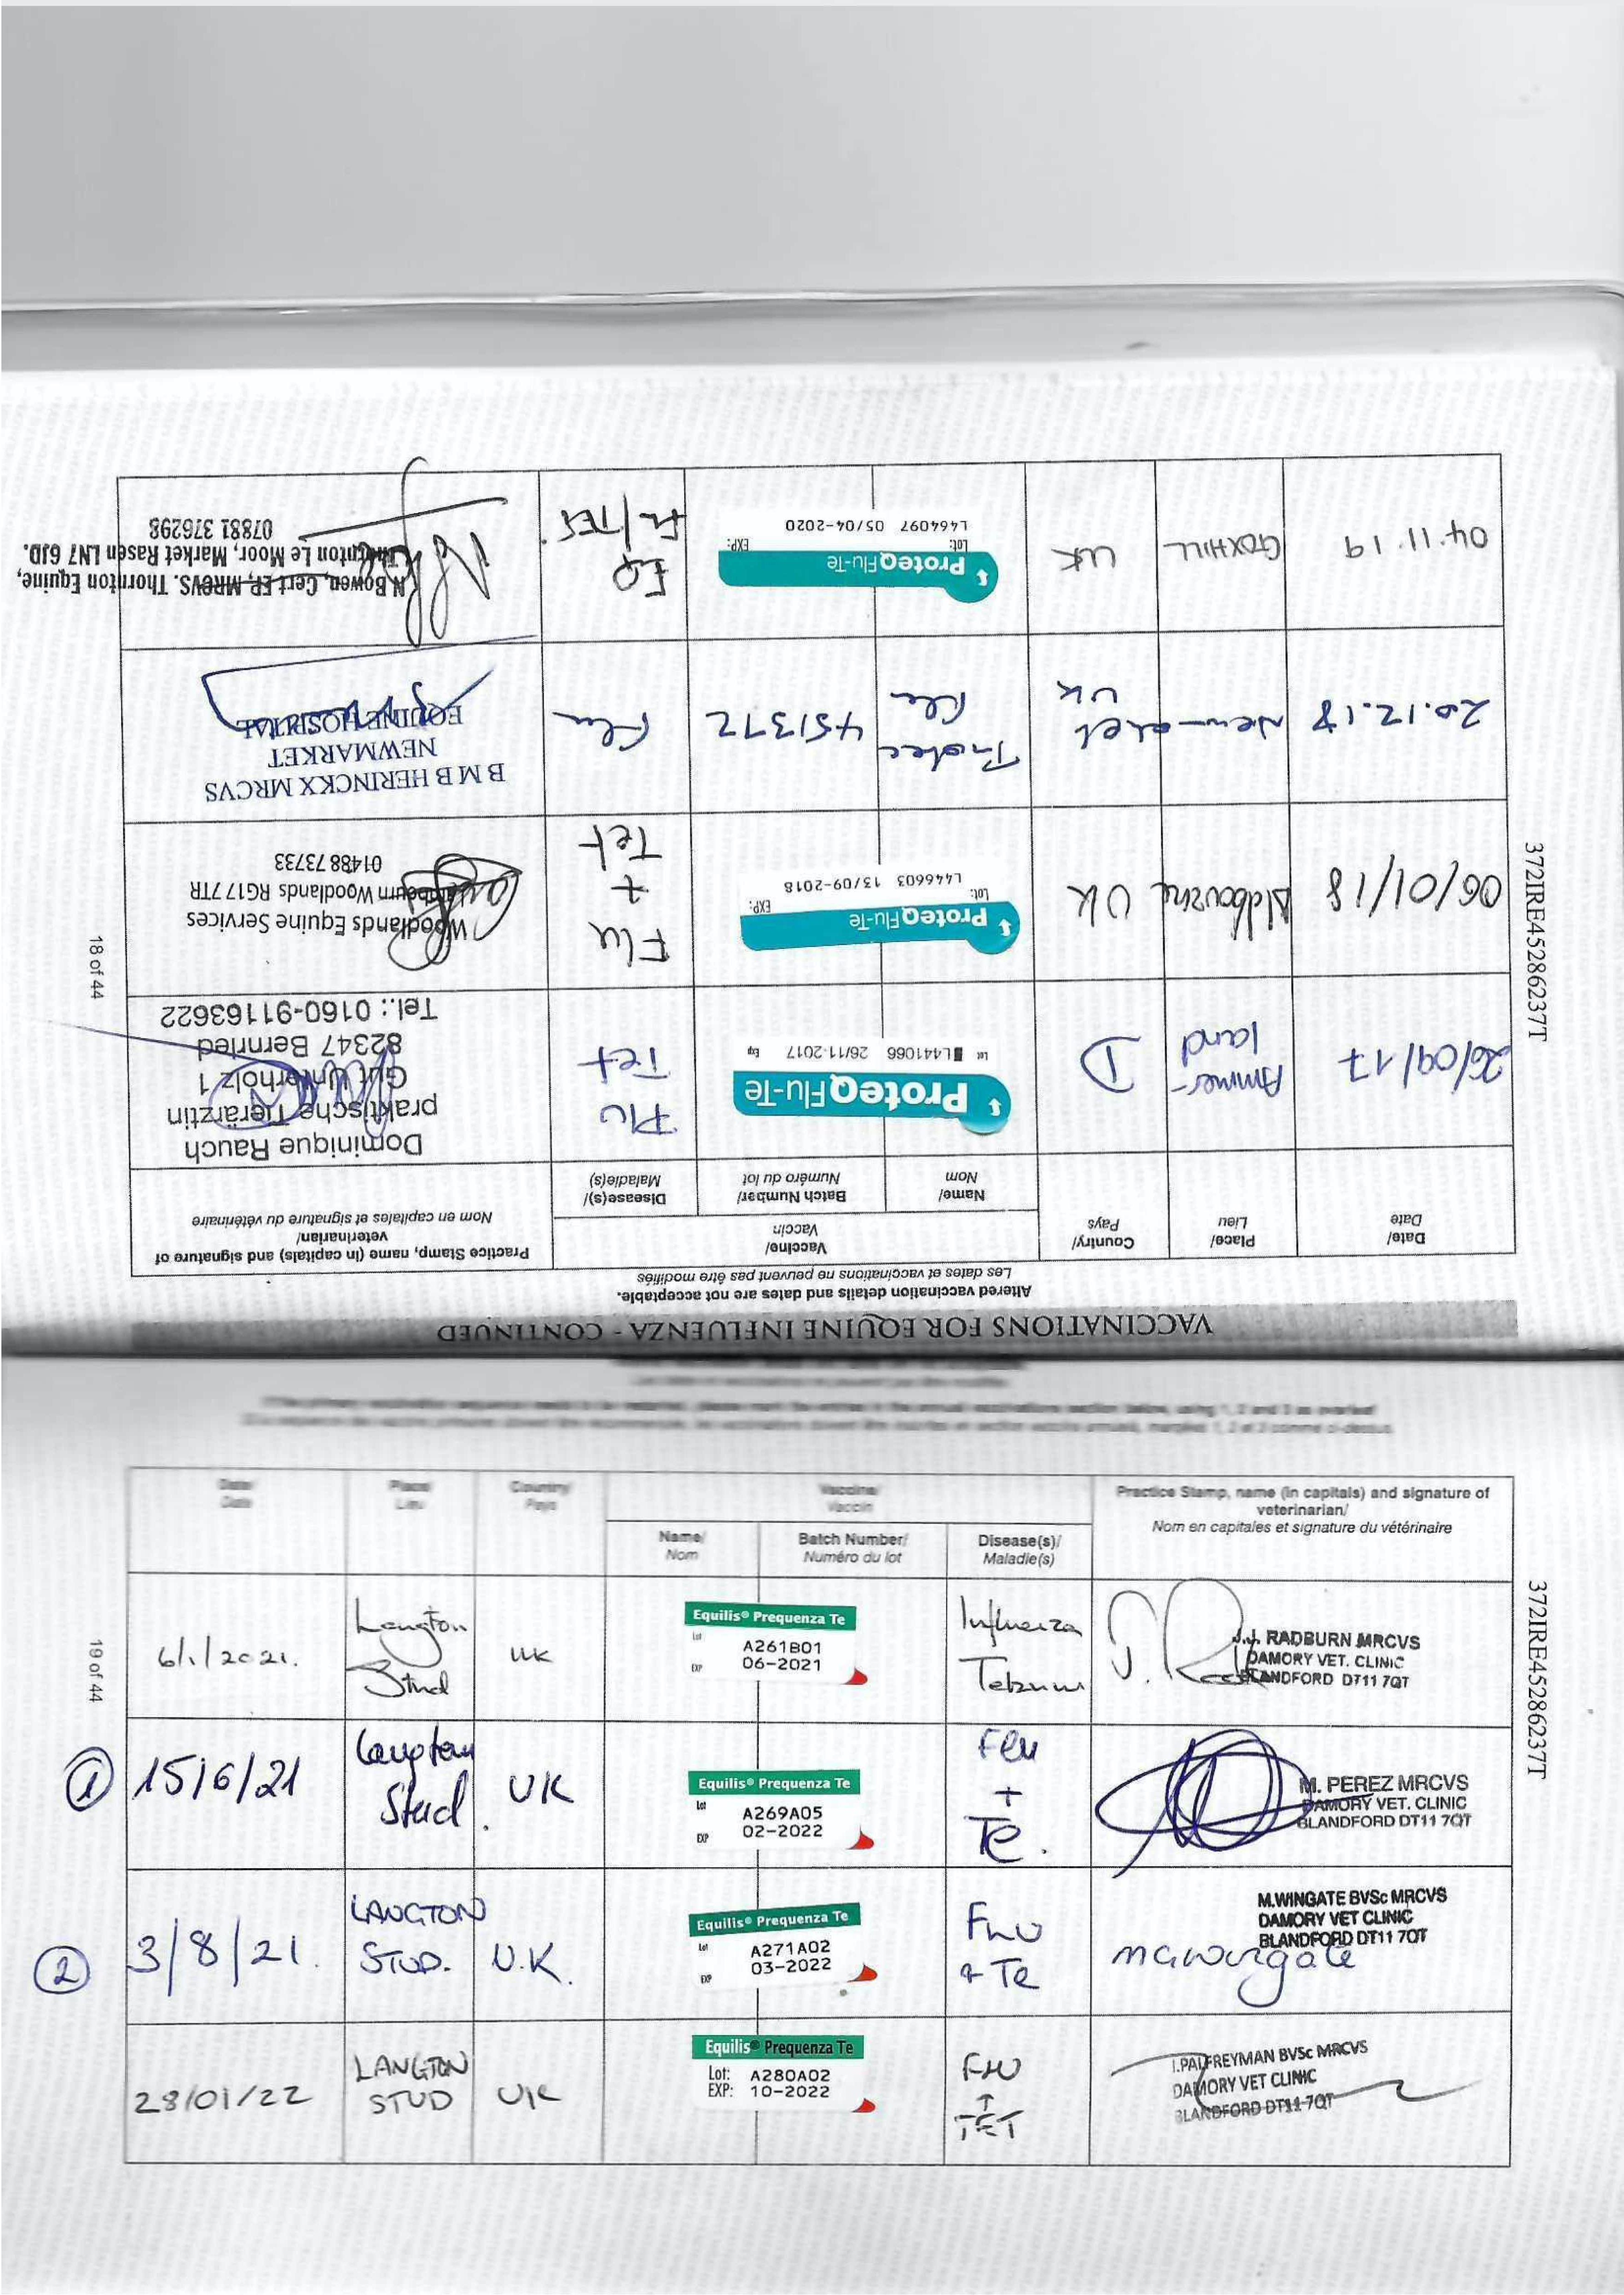 VACCINATIONS FOR EQUINE INFLUENZA - CONTINUED
Altered vaccination details and dates are not acceptable.
Les dates et vaccinations ne peuvent pas être modifiés
Date/
Date
Place/
Lieu
Country/
Pays
Vaccine/
Vaccin
Name/
Nom
Batch Number/
Numéro du lot
Disease(s)/
Maladie(s)
Practice Stamp, name (in capitals) and signature of
veterinarian/
Nom en capitales et signature du vétérinaire
26/09/17
Ammer-
land
D
ProteqFlu-Te
Lot L441066 26/11-2017 Exp
Flu
Tet
Dominique Rauch
praktische Tierärztin
Gut Unterholz 1
82347 Bernried
Tel.: 0160-91163622
06/01/18
Aldbourne
UK
ProteqFlu-Te
Lot: EXP:
L446603 13/09-2018
Flu
+
Tet
Woodlands Equine Services
Woodlands RG17 7TR
01488 73733
20.12.18
Newmarket
UK
Protec
Flu
451372
Flu
B M B HERINCKX MRCVS
NEWMARKET
EQUINE HOSPITAL
04.11.19
GOXHILL
UK
ProteqFlu-Te
Lot: EXP:
L464097 05/04-2020
EQ
FL/TET.
N Bowen, Cert EP, MRCVS. Thornton Equine,
Thornton Le Moor, Market Rasen LN7 6JD.
07881 376298
372IRE45286237T
18 of 44
Date/
Date
Place/
Lieu
Country/
Pays
Vaccine/
Vaccin
Name/
Nom
Batch Number/
Numéro du lot
Disease(s)/
Maladie(s)
Practice Stamp, name (in capitals) and signature of
veterinarian/
Nom en capitales et signature du vétérinaire
6/1/2021.
Langton
Stud
UK
Equilis® Prequenza Te
Lot A261B01
EXP 06-2021
Influenza
Tetanus
J.J. RADBURN MRCVS
DAMORY VET. CLINIC
BLANDFORD DT11 7QT
1
15/6/21
Langton
Stud.
UK
Equilis® Prequenza Te
Lot A269A05
EXP 02-2022
Flu
+
Te.
M. PEREZ MRCVS
DAMORY VET. CLINIC
BLANDFORD DT11 7QT
2
3/8/21.
LANGTON
STUD.
U.K.
Equilis® Prequenza Te
Lot A271A02
EXP 03-2022
FLU
& Te
M.WINGATE BVSc MRCVS
DAMORY VET CLINIC
BLANDFORD DT11 7QT
28/01/22
LANGTON
STUD
UK
Equilis® Prequenza Te
Lot: A280A02
EXP: 10-2022
FLU
+
TET
I.PALFREYMAN BVSc MRCVS
DAMORY VET CLINIC
BLANDFORD DT11 7QT
372IRE45286237T
19 of 44